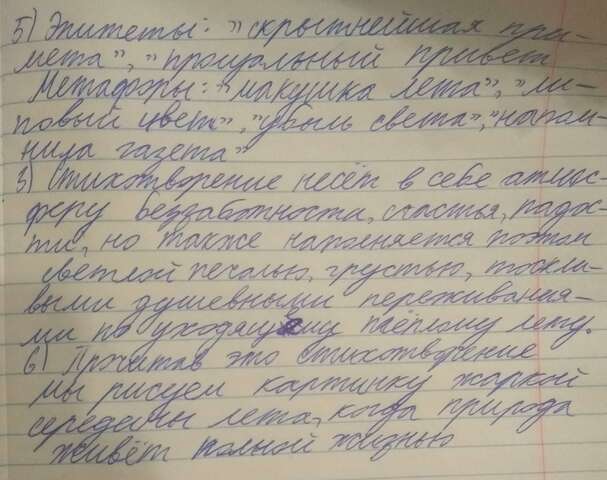 5) Эпитеты: "скрытнейшая при-
мета", "прощальный привет
Метафоры: "макушка лета", "ли-
повый цвет", "убыль света", "напом-
нила газета"
3) Стихотворение несёт в себе атмос-
феру беззаботности, счастья, радос-
ти, но также наполняется поэтом
светлой печалью, грустью, тоскли-
выми душевными переживания-
ми по уходящему тёплому лету.
6) Прочитав это стихотворение
мы рисуем картинку жаркой
середины лета, когда природа
живёт полной жизнью